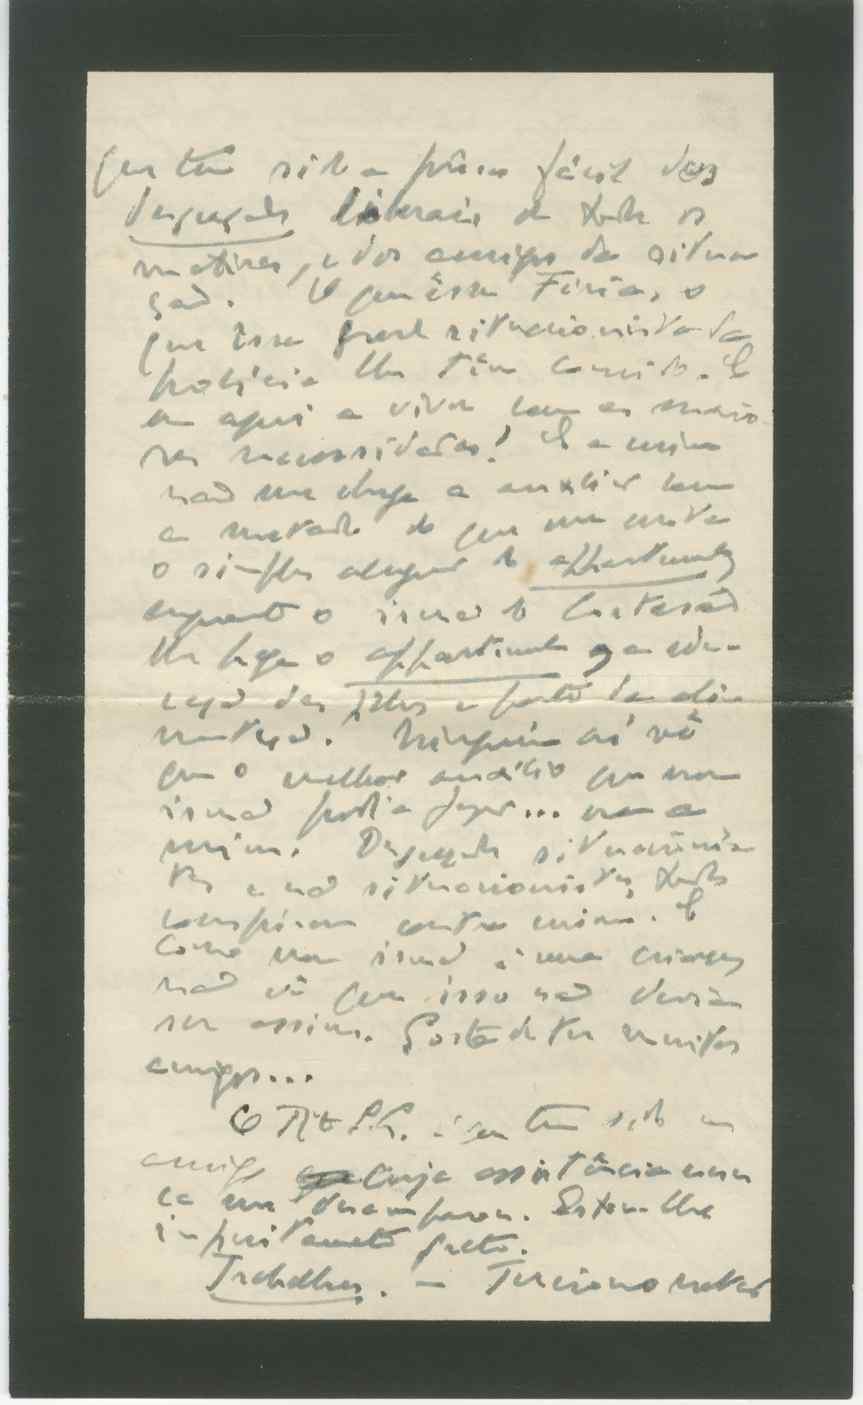 que tem sido a prêsa fácil dos
liberais de todos os
matizes, e dos amigos da situa-
ção. O que êsse Faria, o
que êsse situacionista da
polícia lhe têm comido. E
eu aqui a viver com as maio-
res necessidades! E a mim
não me chega a auxiliar com
a metade do que me custa
o simples aluguer do appartement,
enquanto o irmão do Cortesão
lhe paga o appartement, a edu-
cação dos filhos e parte da ali-
mentação. Ninguém aí vê
que o melhor auxílio que meu
irmão podia fazer... era a
mim. situacionis-
tas e não situacionistas, todos
conspiram contra mim. E
como meu irmão é uma criança
não vê que isso não devia
ser assim. Gosta de ter muitos
amigos...
O tem sido um
amigo cuja assistência nun-
ca me desamparou. Estou-lhe
infinitamente grato.
Trabalhos. —